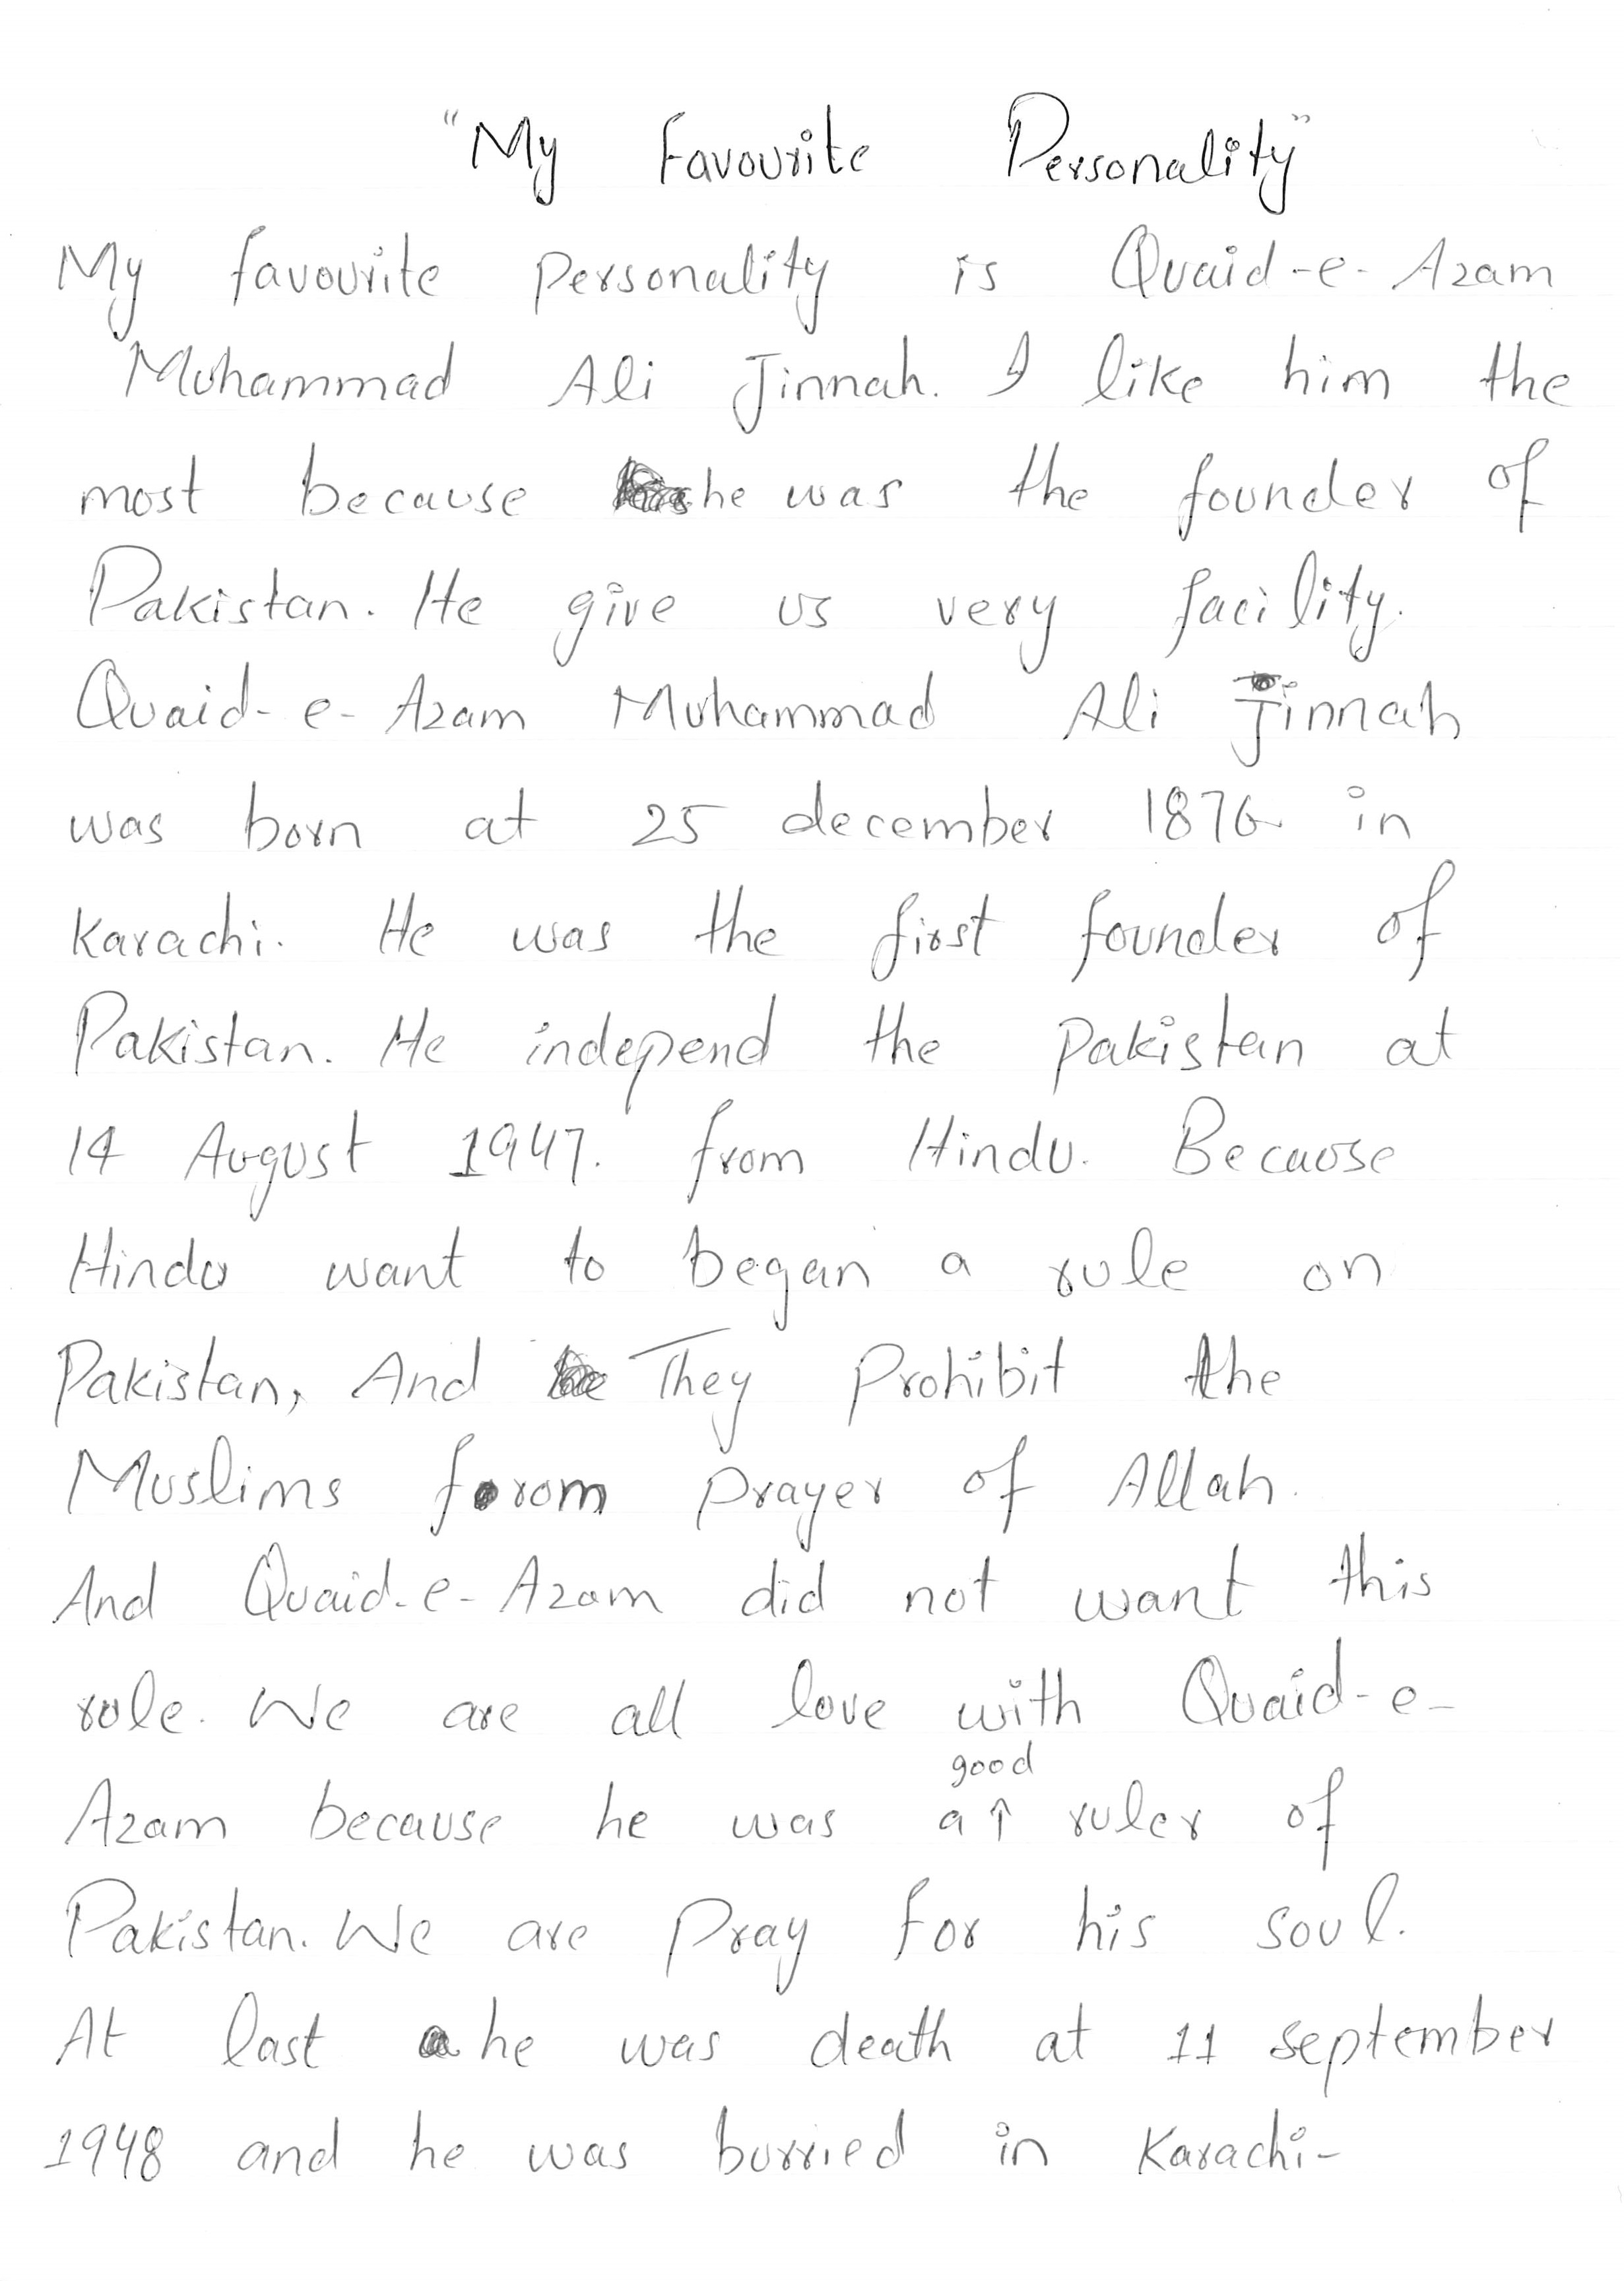 "My Favourite Personality"
My favourite personality is Quaid-e-Azam
Muhammad Ali Jinnah. I like him the
most because he was the founder of
Pakistan. He give us very facility.
Quaid-e-Azam Muhammad Ali Jinnah
was born at 25 december 1876 in
Karachi. He was the first founder of
Pakistan. He independ the Pakistan at
14 August 1947. from Hindu. Because
Hindu want to began a rule on
Pakistan, And They Prohibit the
Muslims from prayer of Allah.
And Quaid-e-Azam did not want this
rule. We are all love with Quaid-e-
Azam because he was a good ruler of
Pakistan. We are Pray for his soul.
At last he was death at 11 september
1948 and he was burried in Karachi-